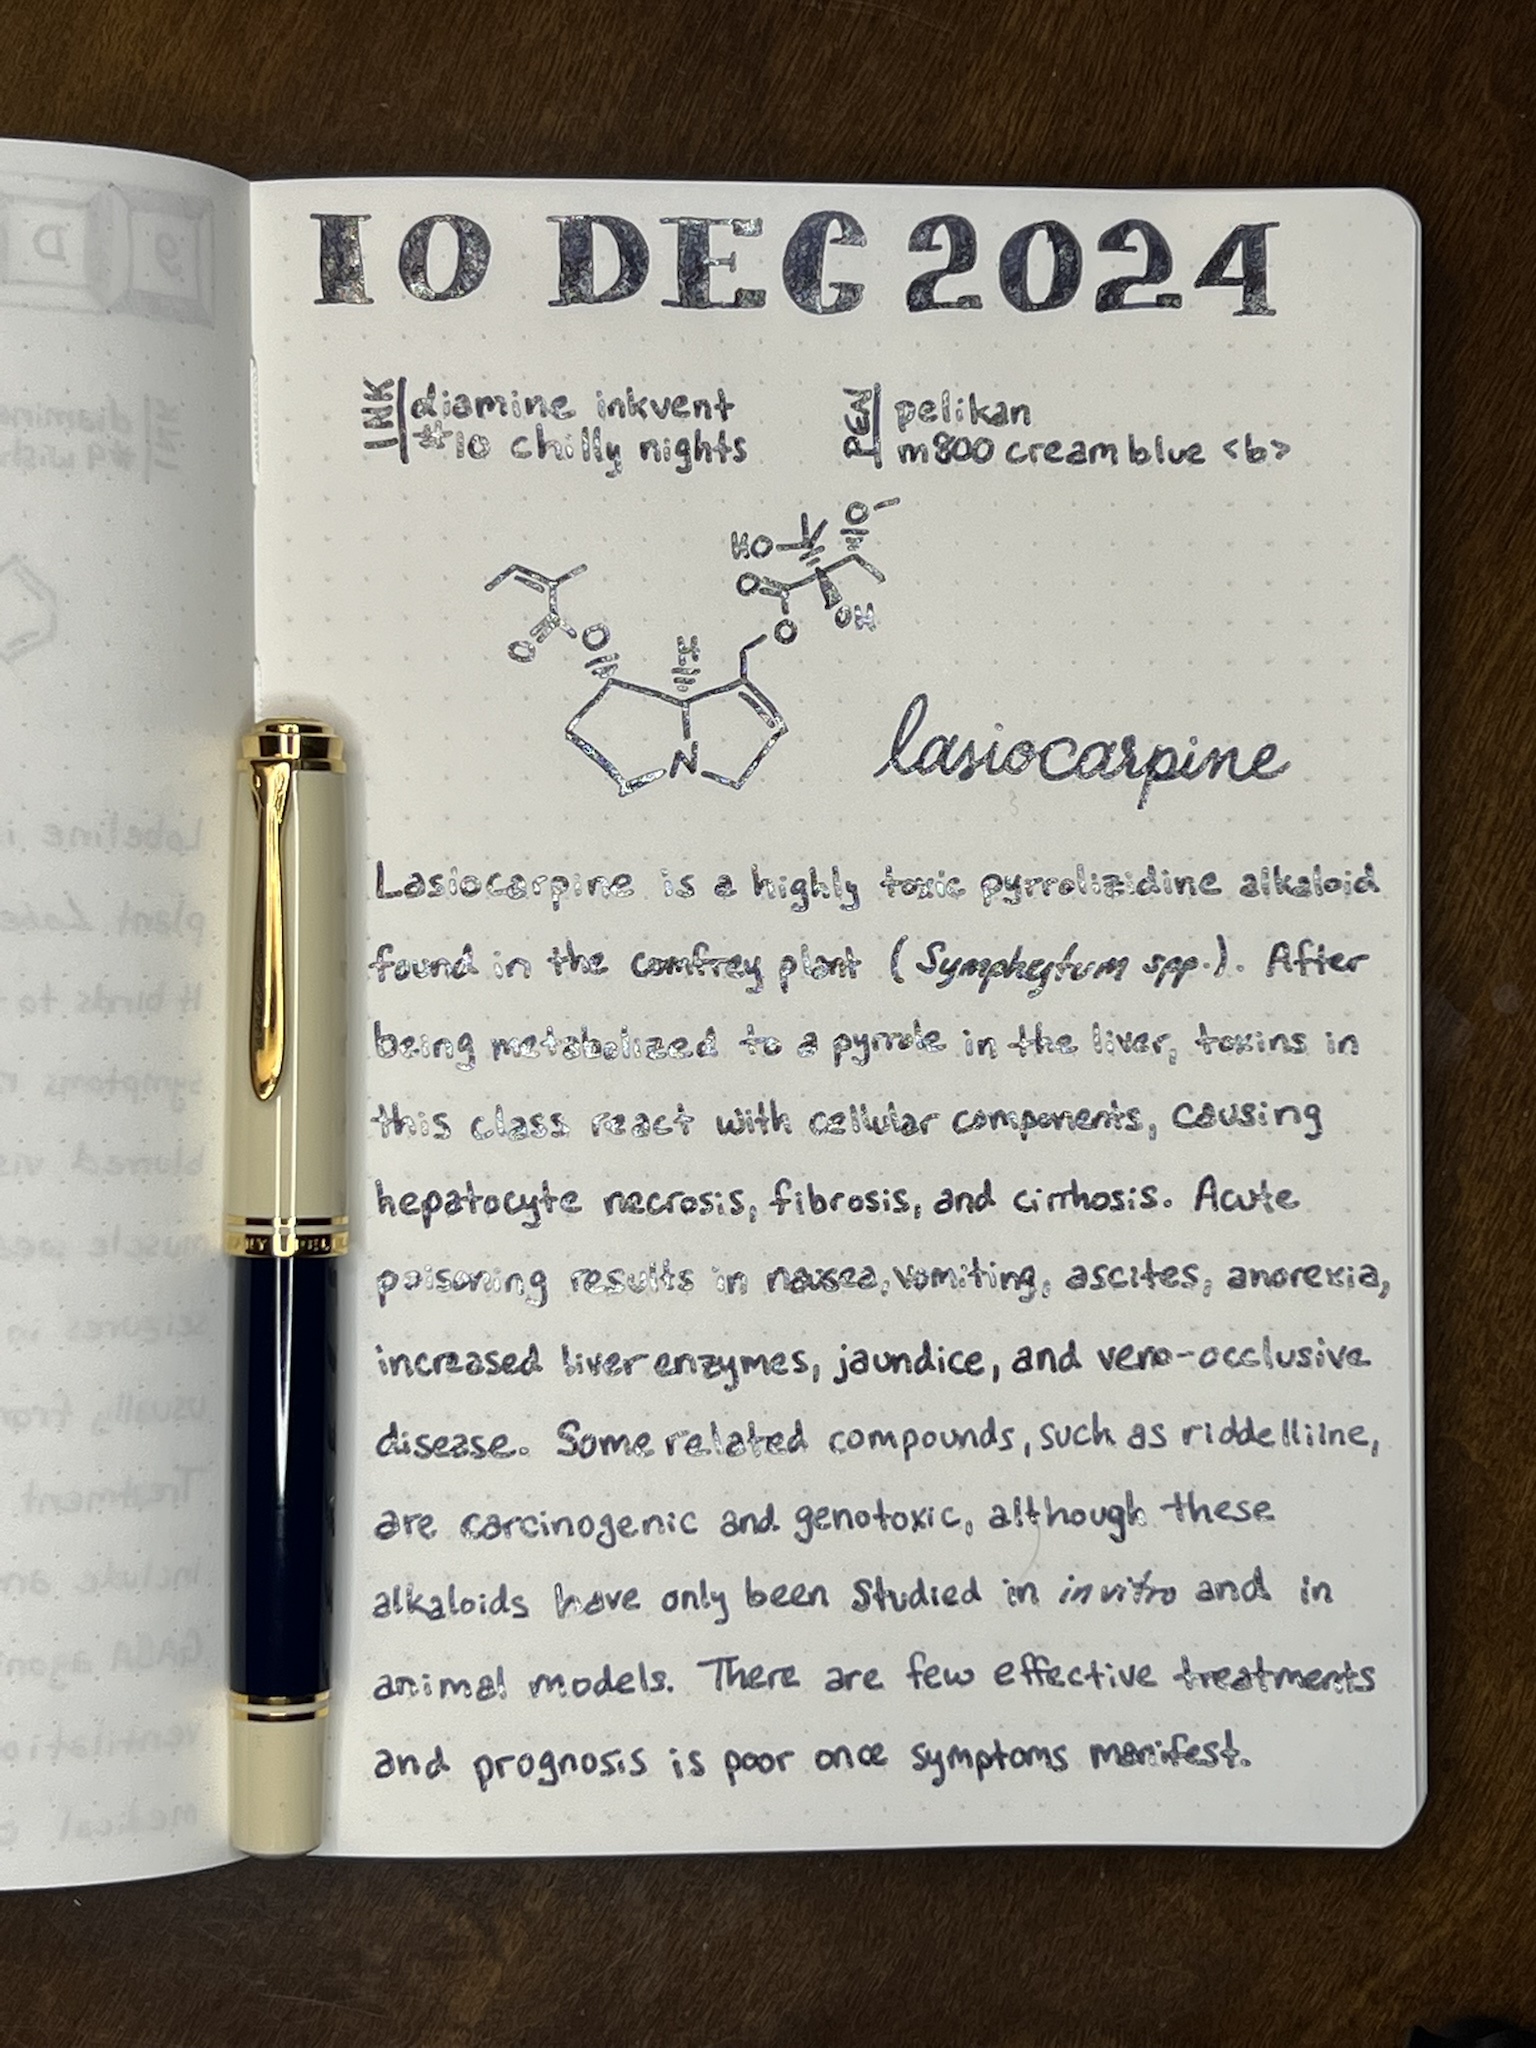 10 DEC 2024
INK
diamine inkvent
#10 chilly nights
PEN
pelikan
m800 cream blue <b>
HO
O
O
OH
O
O
O
H
N
lasiocarpine
Lasiocarpine is a highly toxic pyrrolizidine alkaloid
found in the comfrey plant (Symphytum spp.). After
being metabolized to a pyrrole in the liver, toxins in
this class react with cellular components, causing
hepatocyte necrosis, fibrosis, and cirrhosis. Acute
poisoning results in nausea, vomiting, ascites, anorexia,
increased liver enzymes, jaundice, and veno-occlusive
disease. Some related compounds, such as riddelliine,
are carcinogenic and genotoxic, although these
alkaloids have only been studied in in vitro and in
animal models. There are few effective treatments
and prognosis is poor once symptoms manifest.